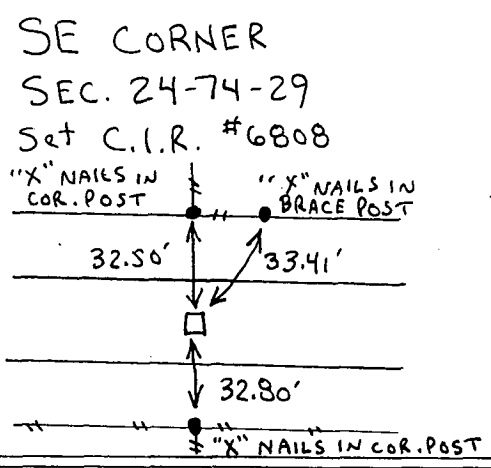 SE CORNER
SEC. 24-74-29
Set C.I.R. #6808
"X" NAILS IN
COR. POST
"X" NAILS IN
BRACE POST
32.50'
33.41'
32.80'
"X" NAILS IN COR. POST